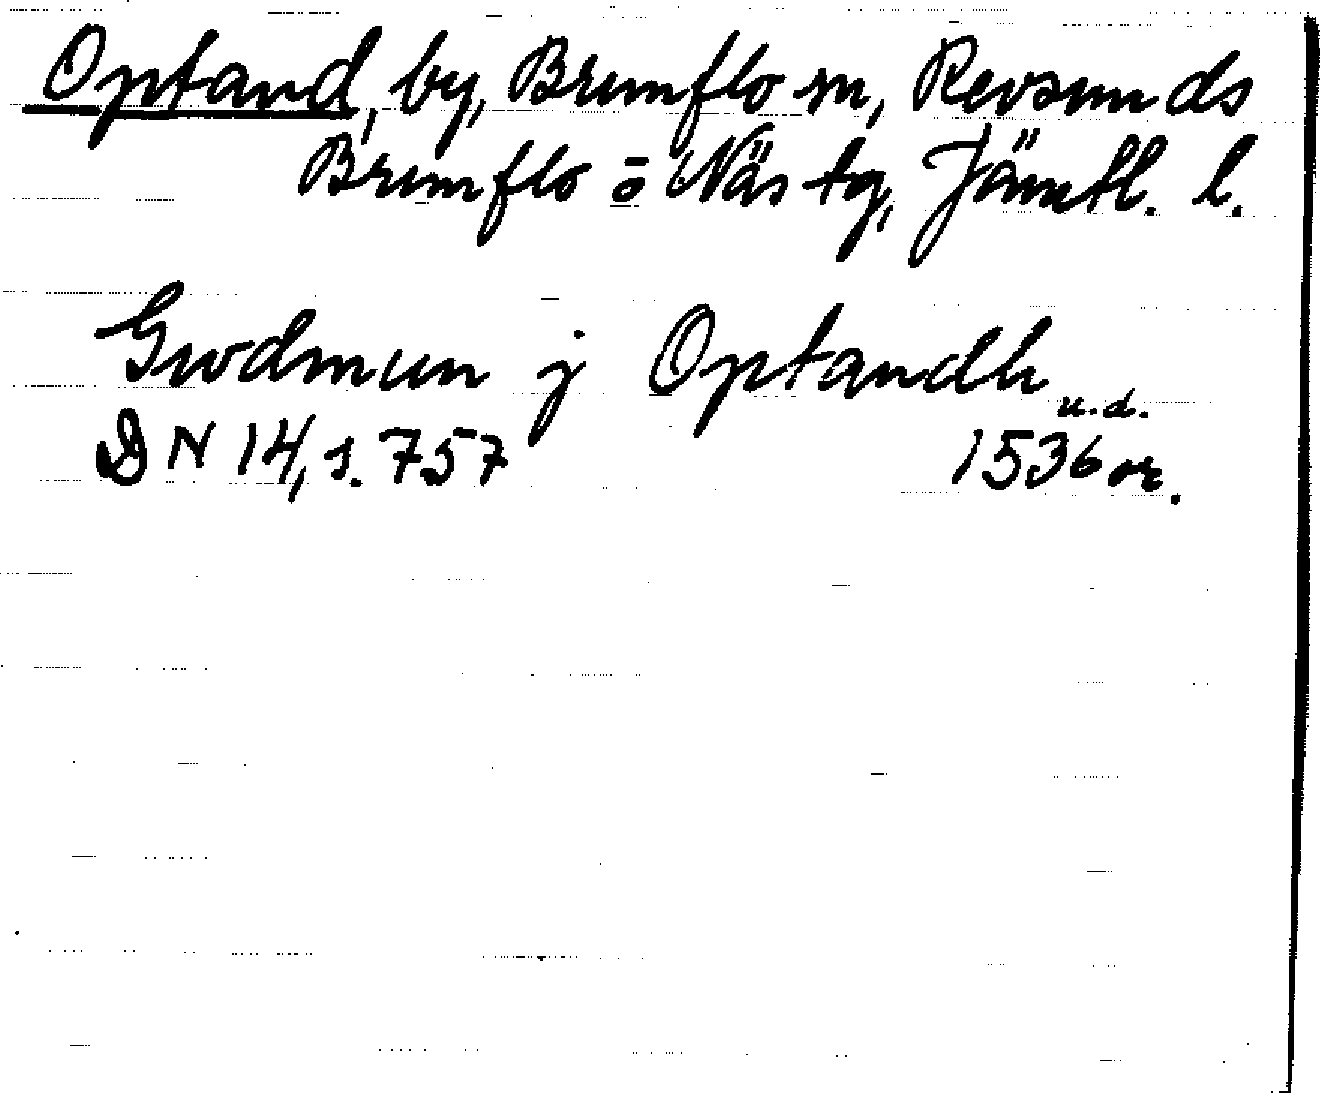 Optand, by, Brunflo sn, Revsunds
Brunflo o Näs tg, Jämtl. l.
Gwdmun j Optandh
u.d.
DN 14, s. 757 1536 or.